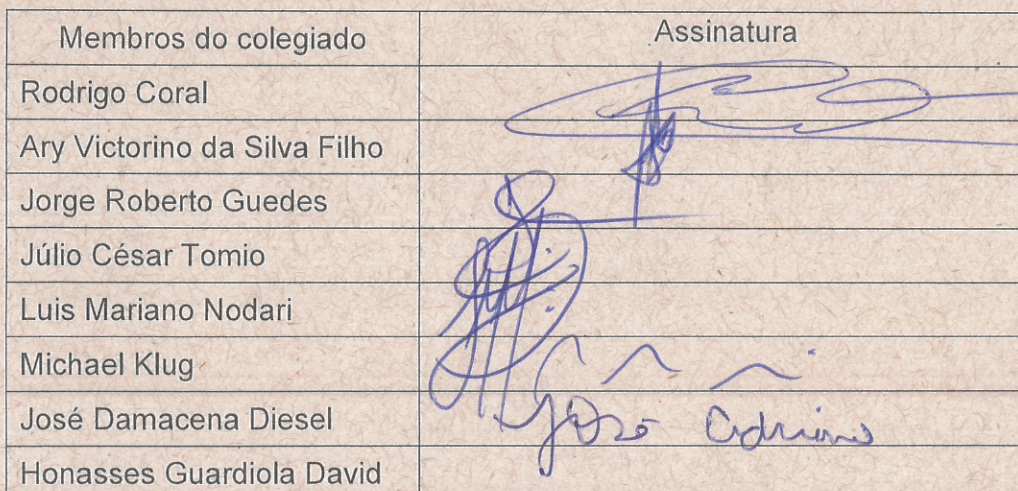 Membros do colegiado Assinatura
Rodrigo Coral
Ary Victorino da Silva Filho
Jorge Roberto Guedes
Júlio César Tomio
Luis Mariano Nodari
Michael Klug
José Damacena Diesel José Adriano
Honasses Guardiola David